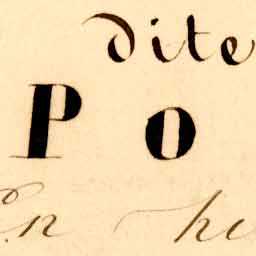 dite
P o
En he